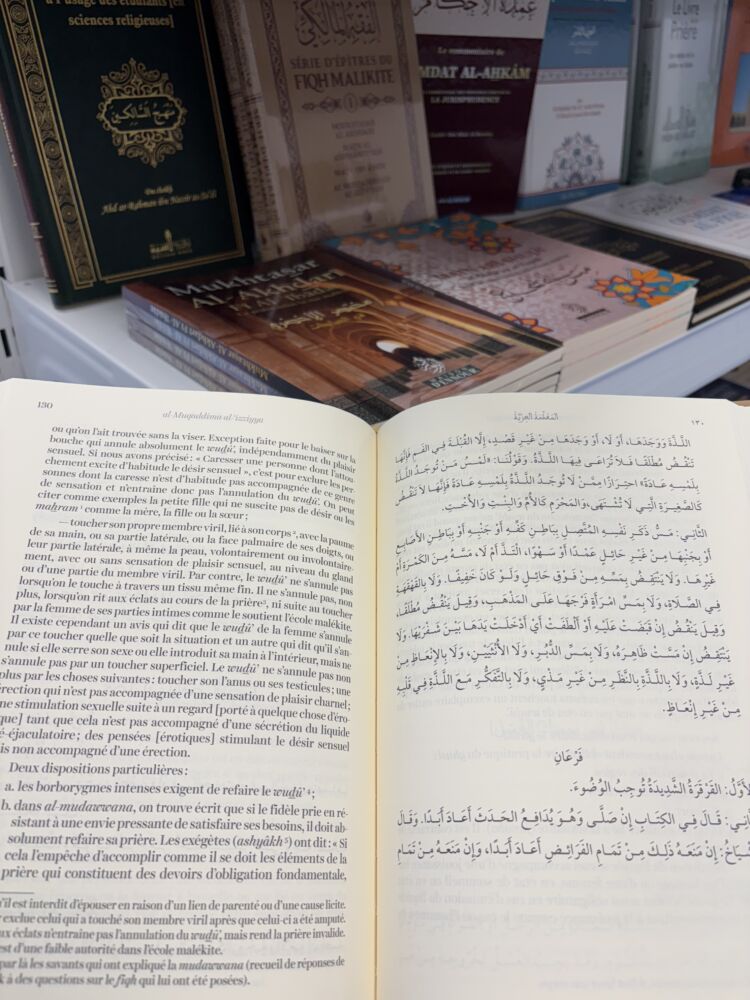 à l'usage des étudiants [en
sciences religieuses]
منهج السالكين
Du cheikh
Abd ar-Rahman ibn Nassir as-Sa'di
الفقه المالكي
SÉRIE D'ÉPITRES DU
FIQH MALIKITE
1
عمدة الأحكام
Le commentaire de
MDAT AL-AHKÂM
LA JURISPRUDENCE
Le Livre
Prière
Mukhtasar
AL-Akhdarî
مختصر الأخضري
Mukhtasar Al-Akhdarî Fî Al-'Ibâdât
130
al-Muqaddima al-'izziyya
ou qu'on l'ait trouvée sans la viser. Exception faite pour le baiser sur la
bouche qui annule absolument le wuḍû', indépendamment du plaisir
sensuel. Si nous avons précisé : « Caresser une personne dont l'attou-
chement excite d'habitude le désir sensuel », c'est pour exclure les per-
sonnes dont la caresse n'est d'habitude pas accompagnée de ce genre
de sensation et n'entraîne donc pas l'annulation du wuḍû'. On peut
citer comme exemples la petite fille qui ne suscite pas de désir ou les
maḥram¹ comme la mère, la fille ou la sœur ;
— toucher son propre membre viril, lié à son corps², avec la paume
de sa main, ou sa partie latérale, ou la face palmaire de ses doigts, ou
leur partie latérale, à même la peau, volontairement ou involontaire-
ment, avec ou sans sensation de plaisir sensuel, au niveau du gland
ou d'une partie du membre viril. Par contre, le wuḍû' ne s'annule pas
lorsqu'on le touche à travers un tissu même fin. Il ne s'annule pas, non
plus, lorsqu'on rit aux éclats au cours de la prière³, ni suite au toucher
par la femme de ses parties intimes comme le soutient l'école malékite.
Il existe cependant un avis qui dit que le wuḍû' de la femme s'annule
par ce toucher quelle que soit la situation et un autre qui dit qu'il s'an-
nule si elle serre son sexe ou elle introduit sa main à l'intérieur, mais ne
s'annule pas par un toucher superficiel. Le wuḍû' ne s'annule pas non
plus par les choses suivantes : toucher son l'anus ou ses testicules ; une
érection qui n'est pas accompagnée d'une sensation de plaisir charnel ;
ne stimulation sexuelle suite à un regard [porté à quelque chose d'éro-
que] tant que cela n'est pas accompagné d'un sécrétion du liquide
é-éjaculatoire ; des pensées [érotiques] stimulant le désir sensuel
is non accompagné d'une érection.
Deux dispositions particulières :
a. les borborygmes intenses exigent de refaire le wuḍû'⁴ ;
b. dans al-mudawwana, on trouve écrit que si le fidèle prie en ré-
sistant à une envie pressante de satisfaire ses besoins, il doit ab-
solument refaire sa prière. Les exégètes (ashyâkh⁵) ont dit : « Si
cela l'empêche d'accomplir comme il se doit les éléments de la
prière qui constituent des devoirs d'obligation fondamentale,
'il est interdit d'épouser en raison d'un lien de parenté ou d'une cause licite.
exclue celui qui a touché son membre viril après que celui-ci a été amputé.
ux éclats n'entraîne pas l'annulation du wuḍû', mais rend la prière invalide.
est d'une faible autorité dans l'école malékite.
par là les savants qui ont expliqué la mudawwana (recueil de réponses de
k à des questions sur le fiqh qui lui ont été posées).
المقدمة العزية
١٣٠
اللَّذَّةَ وَوَجَدَهَا، أَوْ لَا، أَوْ وَجَدَهَا مِنْ غَيْرِ قَصْدٍ، إِلَّا القُبْلَةَ فِي الفَمِ فَإِنَّهَا
تَنْقُضُ مُطْلَقًا فَلَا تُرَاعَى فِيهَا اللَّذَّةُ. وَقَوْلُنَا: «لَمْسُ مَنْ تُوجَدُ اللَّذَّةُ
بِلَمْسِهِ عَادَةً» احْتِرَازًا مِمَّنْ لَا تُوجَدُ اللَّذَّةُ بِلَمْسِهِ عَادَةً فَإِنَّهَا لَا تَنْقُضُ
كَالصَّغِيرَةِ الَّتِي لَا تُشْتَهَى، وَالمَحْرَمِ كَالأُمِّ وَالبِنْتِ وَالأُخْتِ.
الثَّانِي: مَسُّ ذَكَرِ نَفْسِهِ المُتَّصِلِ بِبَاطِنِ كَفِّهِ أَوْ جَنْبِهِ أَوْ بِبَاطِنِ الأَصَابِعِ
أَوْ بِجَنْبِهَا مِنْ غَيْرِ حَائِلٍ عَمْدًا أَوْ سَهْوًا، الْتَذَّ أَمْ لَا، مَسَّهُ مِنَ الكَمَرَةِ أَمْ
غَيْرِهَا. وَلَا يَنْتَقِضُ بِمَسِّهِ مِنْ فَوْقِ حَائِلٍ وَلَوْ كَانَ خَفِيفًا. وَلَا بِالقَهْقَهَةِ
فِي الصَّلَاةِ، وَلَا بِمَسِّ امْرَأَةٍ فَرْجَهَا عَلَى المَذْهَبِ، وَقِيلَ يَنْقُضُ مُطْلَقًا،
وَقِيلَ يَنْقُضُ إِنْ قَبَضَتْ عَلَيْهِ أَوْ أَلْطَفَتْ أَيْ أَدْخَلَتْ يَدَهَا بَيْنَ شَفْرَيْهَا. وَلَا
يَنْتَقِضُ إِنْ مَسَّتْ ظَاهِرَهُ، وَلَا بِمَسِّ الدُّبُرِ، وَلَا الأُنْثَيَيْنِ، وَلَا بِالإِنْعَاظِ مِنْ
غَيْرِ لَذَّةٍ، وَلَا بِاللَّذَّةِ بِالنَّظَرِ مِنْ غَيْرِ مَذْيٍ، وَلَا بِالتَّفَكُّرِ مَعَ اللَّذَّةِ فِي قَلْبِهِ
مِنْ غَيْرِ إِنْعَاظٍ.
فَرْعَانِ
لأَوَّلُ: القَرْقَرَةُ الشَّدِيدَةُ تُوجِبُ الوُضُوءَ.
ثَّانِي: قَالَ فِي الكِتَابِ إِنْ صَلَّى وَهُوَ يُدَافِعُ الحَدَثَ أَعَادَ أَبَدًا. وَقَالَ
شْيَاخُ: إِنْ مَنَعَهُ ذَلِكَ مِنْ تَمَامِ الفَرَائِضِ أَعَادَ أَبَدًا، وَإِنْ مَنَعَهُ مِنْ تَمَامِ